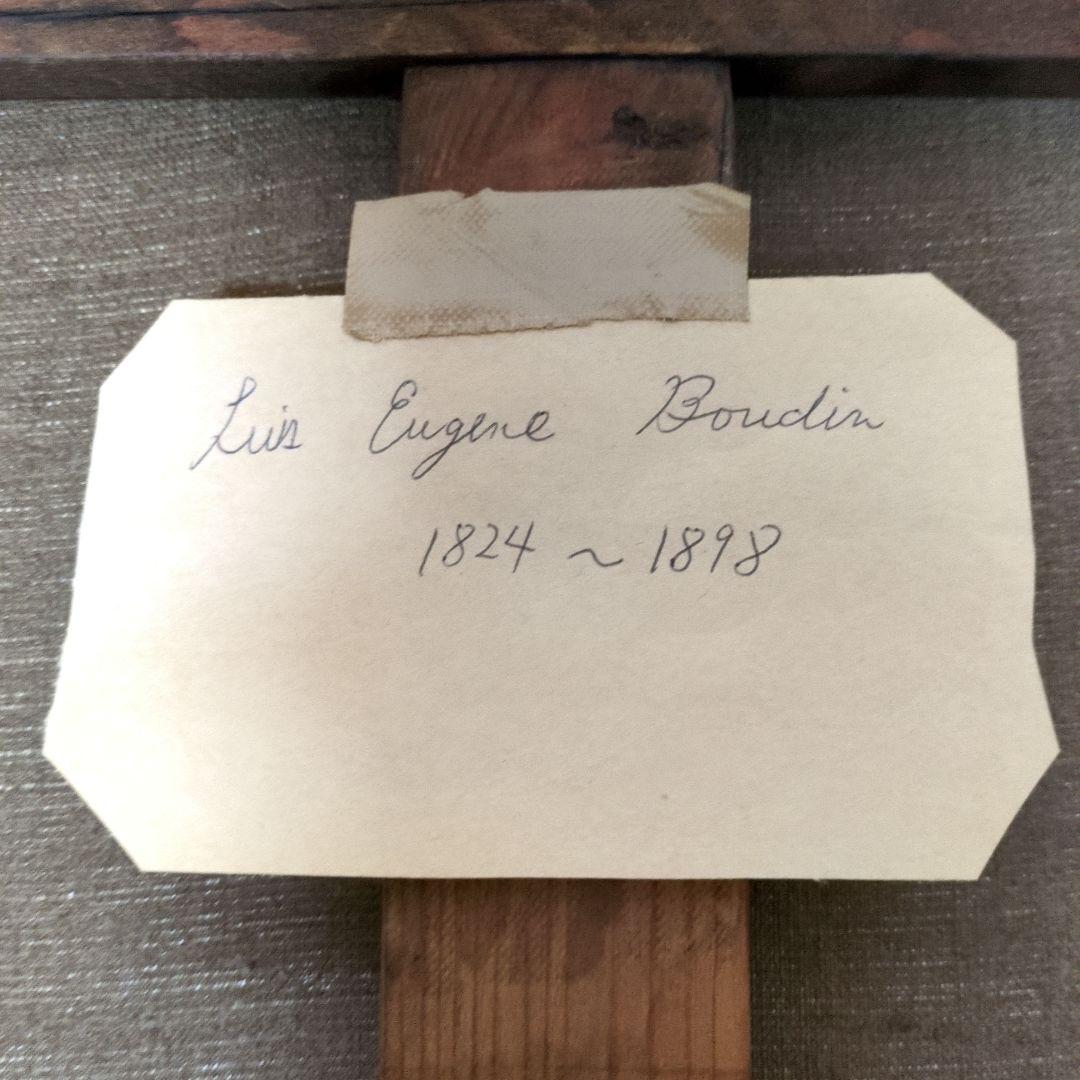 Luis Eugene Boudin
1824 ~ 1898